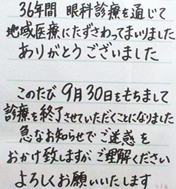 36年間 眼科診療を通じて
地域医療にたずさわってまいりました
ありがとうございました
このたび 9月30日をもちまして
診療を終了させていただくことになりました
急なお知らせで ご迷惑を
おかけ致しますが ご理解ください
よろしくお願いいたします